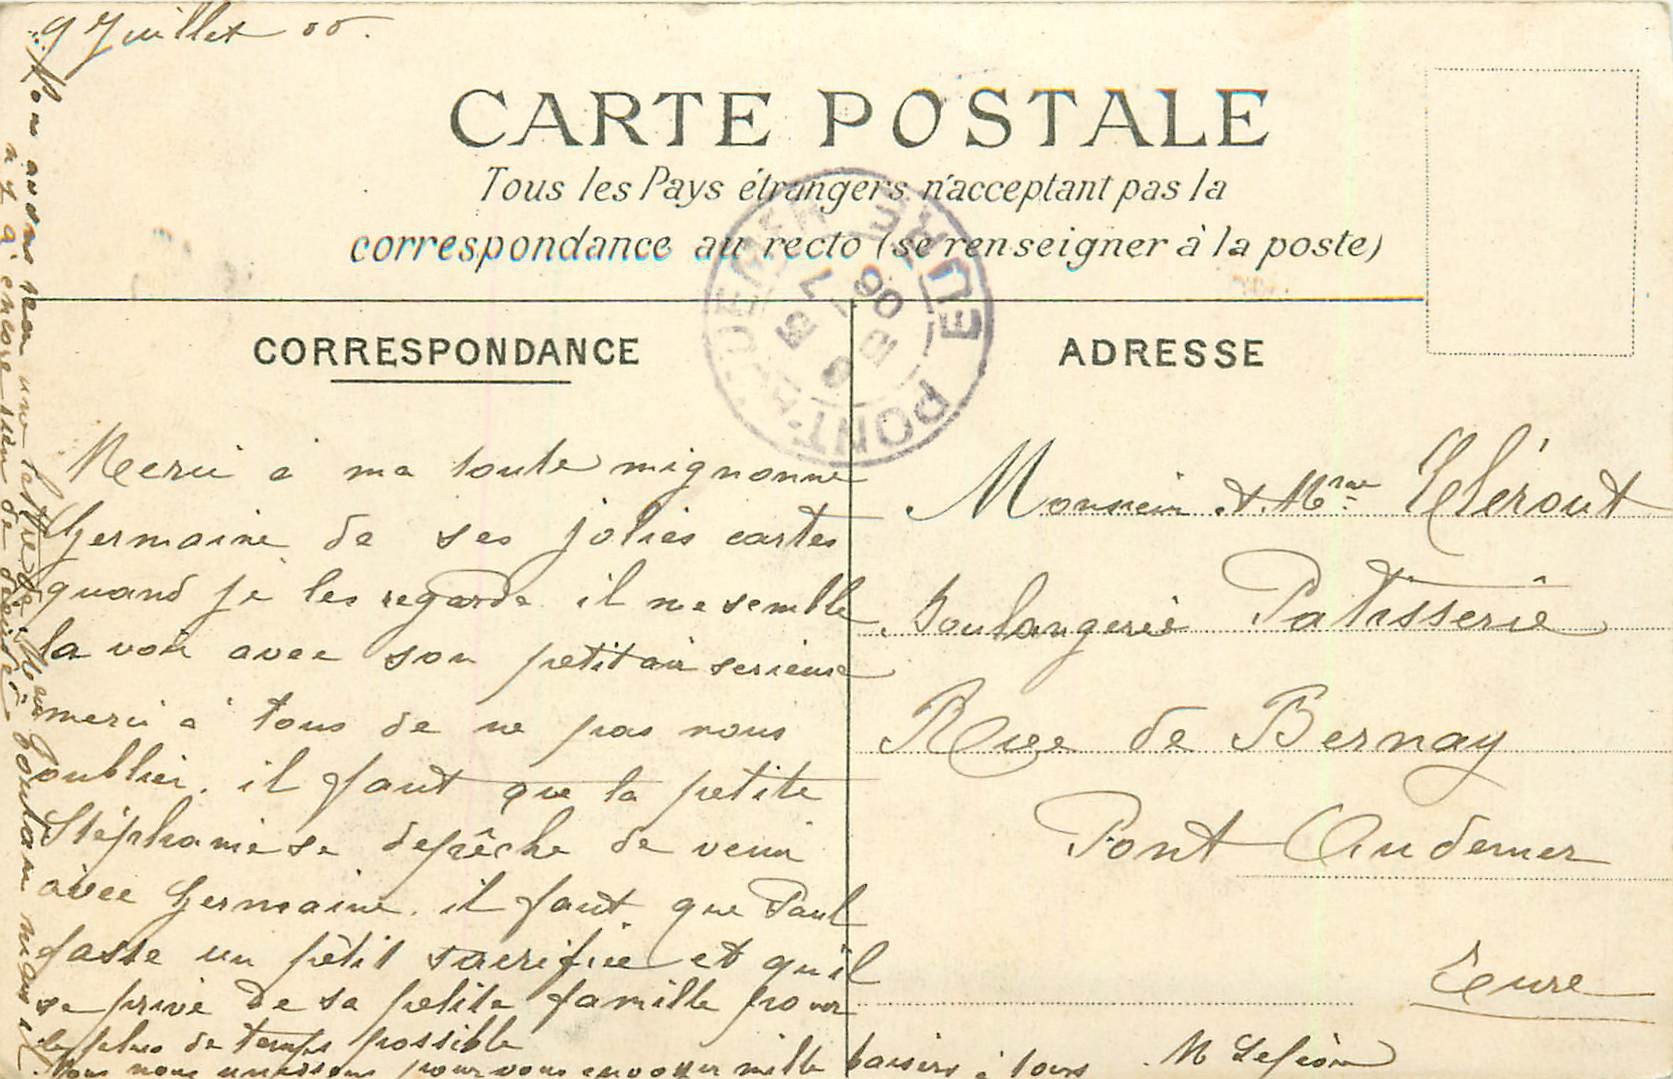 9 Juillet 06.
CARTE POSTALE
Tous les Pays étrangers n'acceptant pas la
correspondance au recto (se renseigner à la poste)
EURE
PONT-AUDEMER
CORRESPONDANCE
ADRESSE
Merci à ma toute mignonne
Germaine de ses jolies cartes
quand je les regarde il me semble
la voir avec son petit air serieux
merci à tous de ne pas nous
oublier. il faut que la petite
Stéphanie se depêche de venir
avec Germaine. il faut que Paul
fasse un petit sacrifice et qu'il
se prive de sa petite famille pour
le plus de temps possible
Nous nous unissons pour vous envoyer mille baisers à tous
Nous avons reçu une lettre de
n'y a encore rien de décidé
Monsieur et Mme
Boulangerie Patisserie
Rue de Bernay
Pont Audemer
Eure